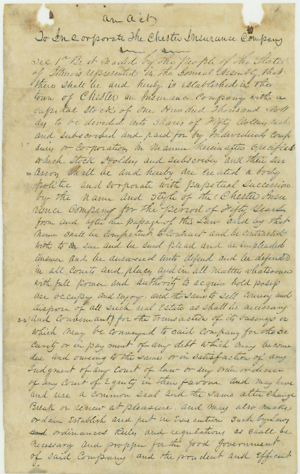 An Act
To Incorporate The Chester Insurance Company
Sec 1st Be it enacted by the People of the State
of Illinois represented in the General Assembly that
there shall be and hereby is established in the
town of Chester an Insurance Company with a
capital Stock of One Hundred Thousand
to be divided into Shares of Fifty Dollars each
and subscribed and paid for by Individuals
or Corporation in manner hereinafter specified
which Stock Holders and Subscribers and their
shall be and hereby are created a body
politic and corporate with perpetual Succession
by the name and Style of the Chester
Company for the Period of Fifty years
from and after the passage of this Law and by that
name shall be competent to Contract and be contracted
with to sue and be sued plead and be impleaded
answer and be answered unto defend and be defended
in all Courts and places and in all matters whatsoever
with full power and authority to acquire hold possess
use occupy and enjoy and the same to sell convey and
dispose of all such real estate as shall be necessary
and convenient for the transaction of its business or
which may be conveyed to said Company for the
security or in payment of any debt which may become
due and owing to the same or in satisfaction of any
Judgment of any Court of law or any order or decree
of any Court of Equity in their favour and may have
and use a common Seal and the same alter Change
break or renew at pleasure and may also make
ordain Establish and put in execution Such bylaws
and ordinances rules and regulations as shall be
necessary and proper for the good Government
of Said Company and the prudent and efficient